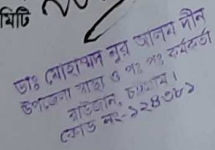 মিটি
ডাঃ মোহাম্মদ নুর আলম দীন
উপজেলা স্বাস্থ্য ও পঃ পঃ কর্মকর্তা
রাউজান, চট্টগ্রাম।
কোড নং-১২৪৩৮১